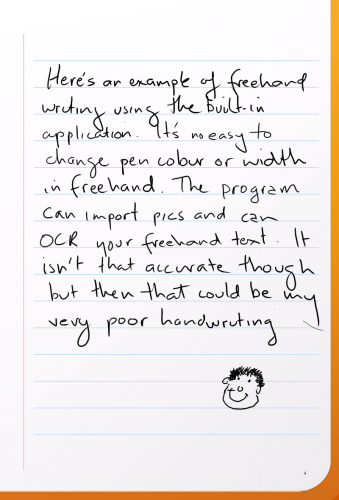 Here's an example of freehand
writing using the built-in
application. It's no easy to
change pen colour or width
in freehand. The program
can import pics and can
OCR your freehand text. It
isn't that accurate though
but then that could be my
very poor handwriting